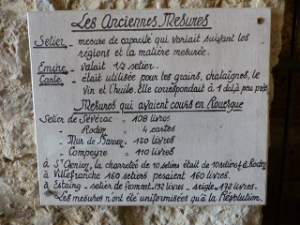 Les Anciennes Mesures
Setier - mesure de capacité qui variait suivant les
régions et la matière mesurée.
Emine - valait 1/2 setier.
Carte - était utilisée pour les grains, chataignes, le
vin et l'huile. Elle correspondait à 1 déjà peu près
Mesures qui avaient cours en Rouergue
Setier de Séverac = 108 livres
" Rodez 4 cartes
" Mur de Barrez = 120 livres
" Compeyre = 110 livres
à St Geniez, la charretée de 10 setiers était de 10 setiers à Rodez
à Villefranche 160 setiers pesaient 160 livres.
à Estaing - setier de froment 192 livres - seigle 172 livres
Les mesures n'ont été uniformisées qu'à la Révolution.